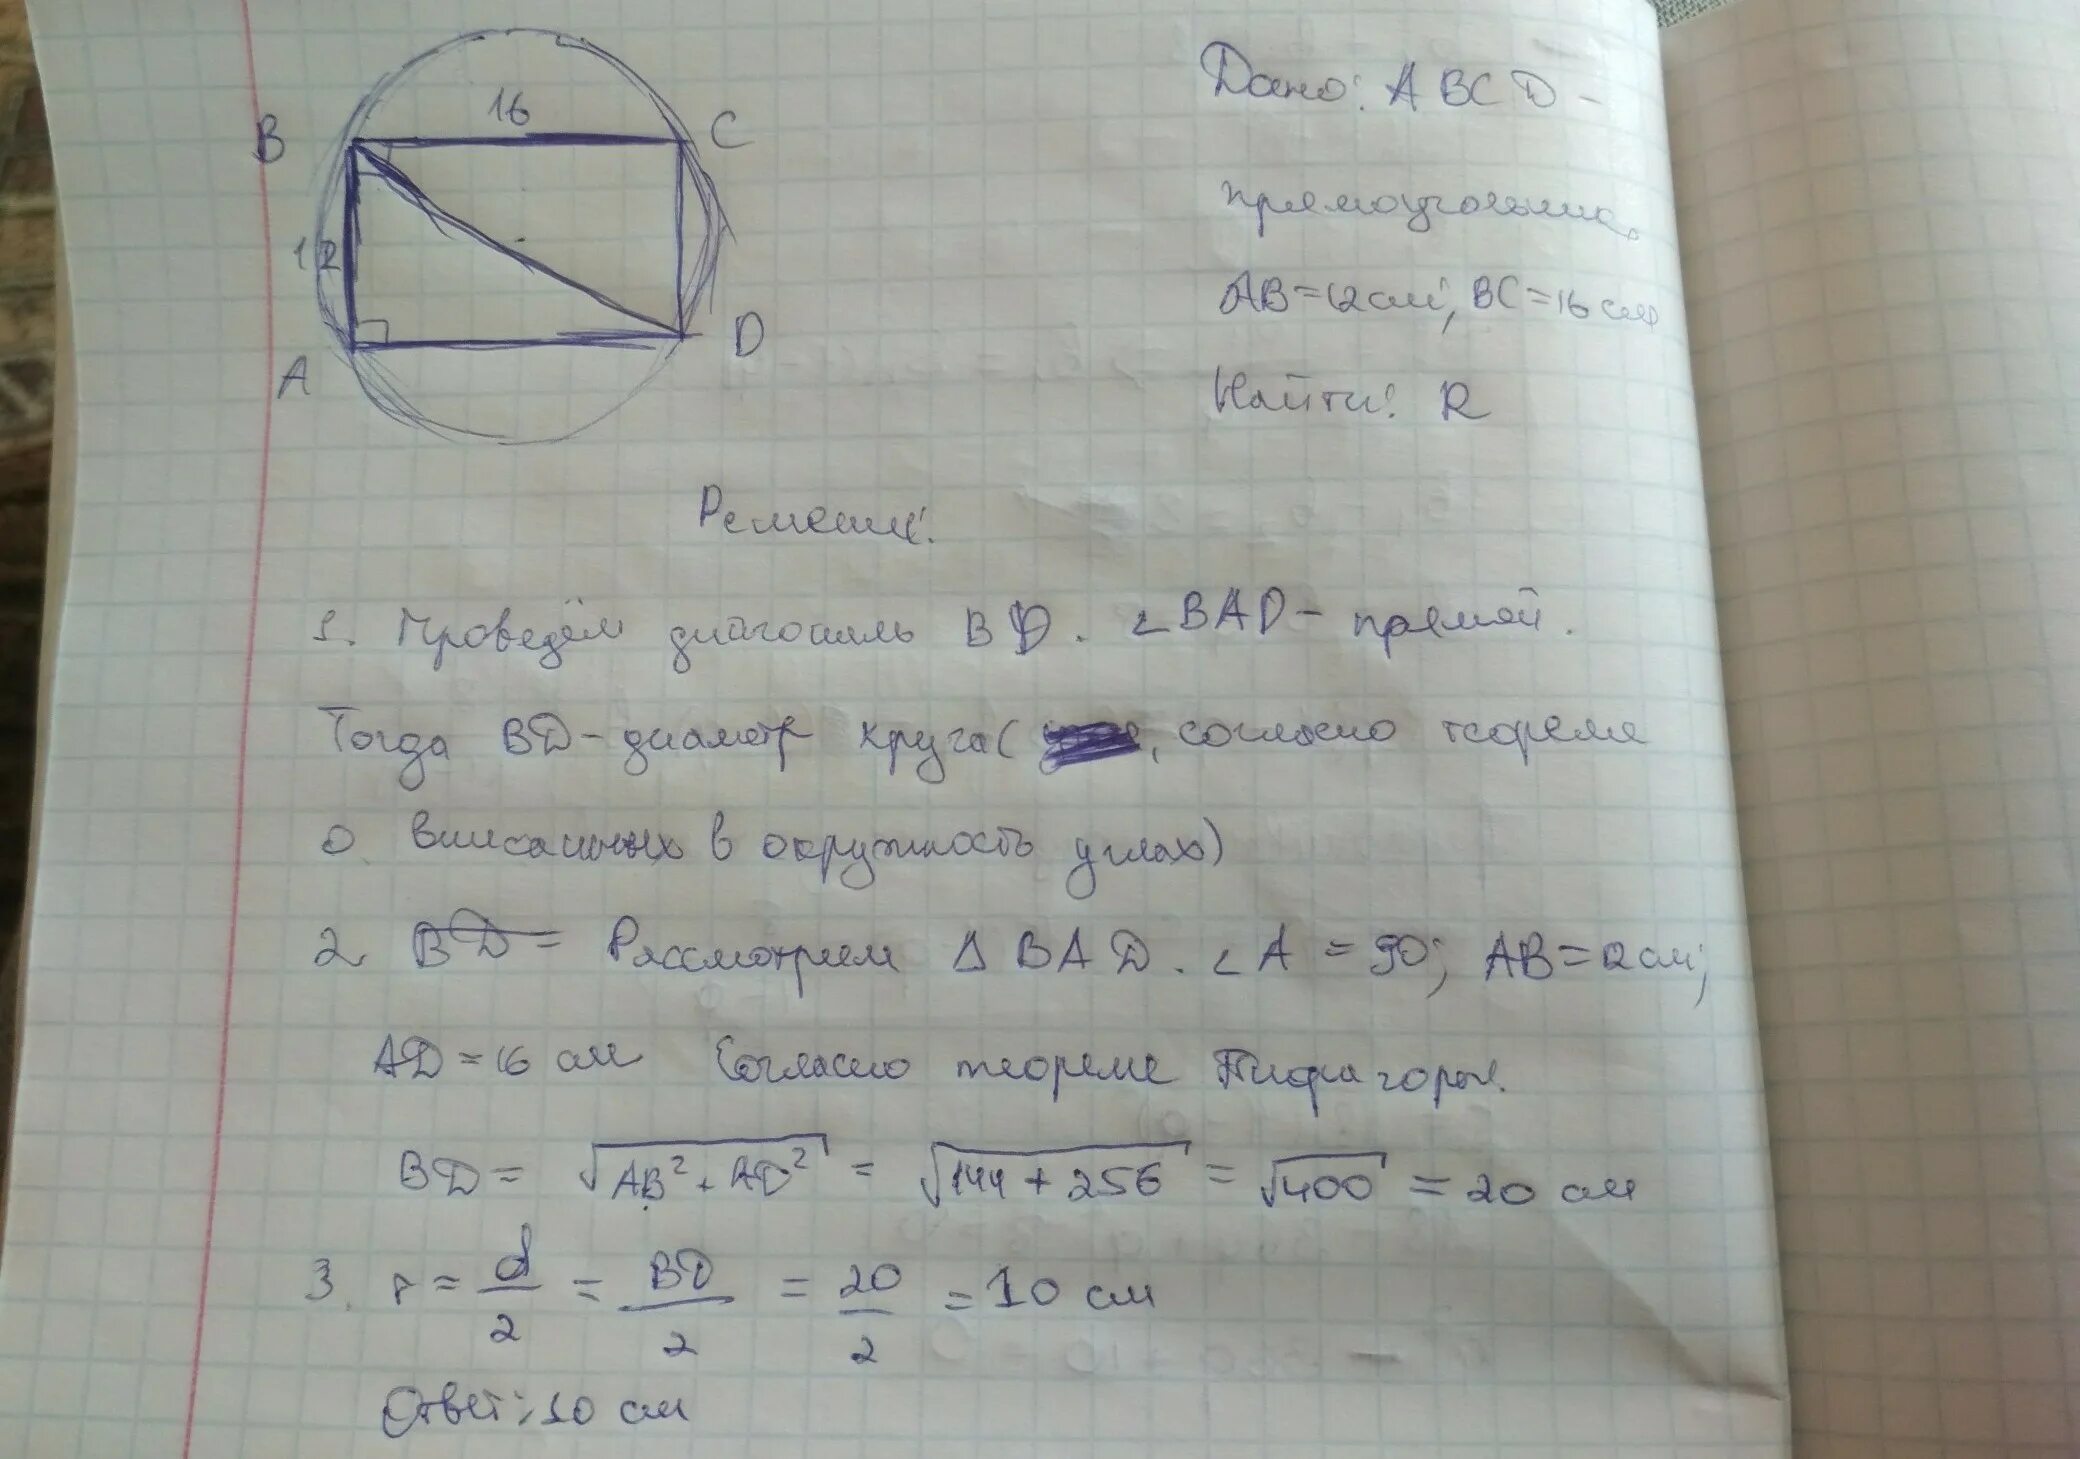 16
B
C
12
A
D
Дано: ABCD -
прямоугольник.
AB=12см, BC=16см
Найти: R
Решение:
1. Проведём диагональ BD. ∠BAD - прямой.
Тогда BD - диаметр круга (, согласно теореме
о вписанных в окружность углах)
2 BD = Рассмотрим Δ BAD. ∠A = 90; AB=12см;
AD=16 см Согласно теореме Пифагоры:
BD = √AB² + AD² = √144+256 = √400 = 20 см
3. r = d/2 = BD/2 = 20/2 = 10 см
Ответ: 10 см